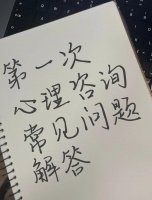 第一次
心理咨询
常见问题
解答